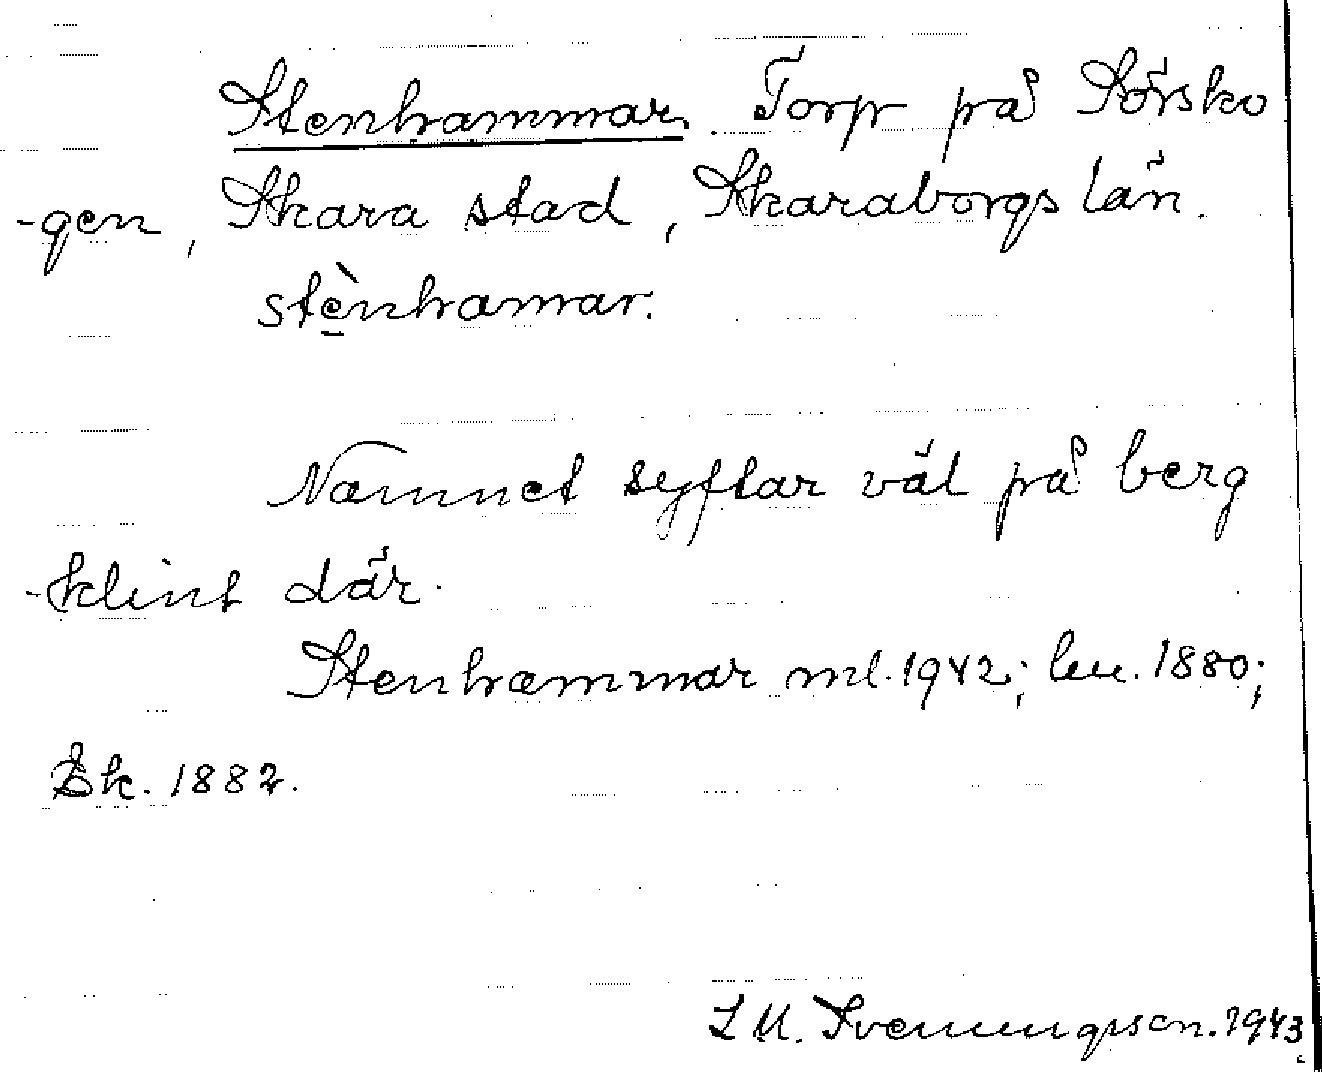 Stenhammar. Torp på Sörsko
-gen, Skara stad, Skaraborgs län.
stènhamar.
Namnet syftar väl på berg
-klint där.
Stenhammar ml. 1942; leu. 1880;
Sk. 1882.
S M. Svenungsson. 1943